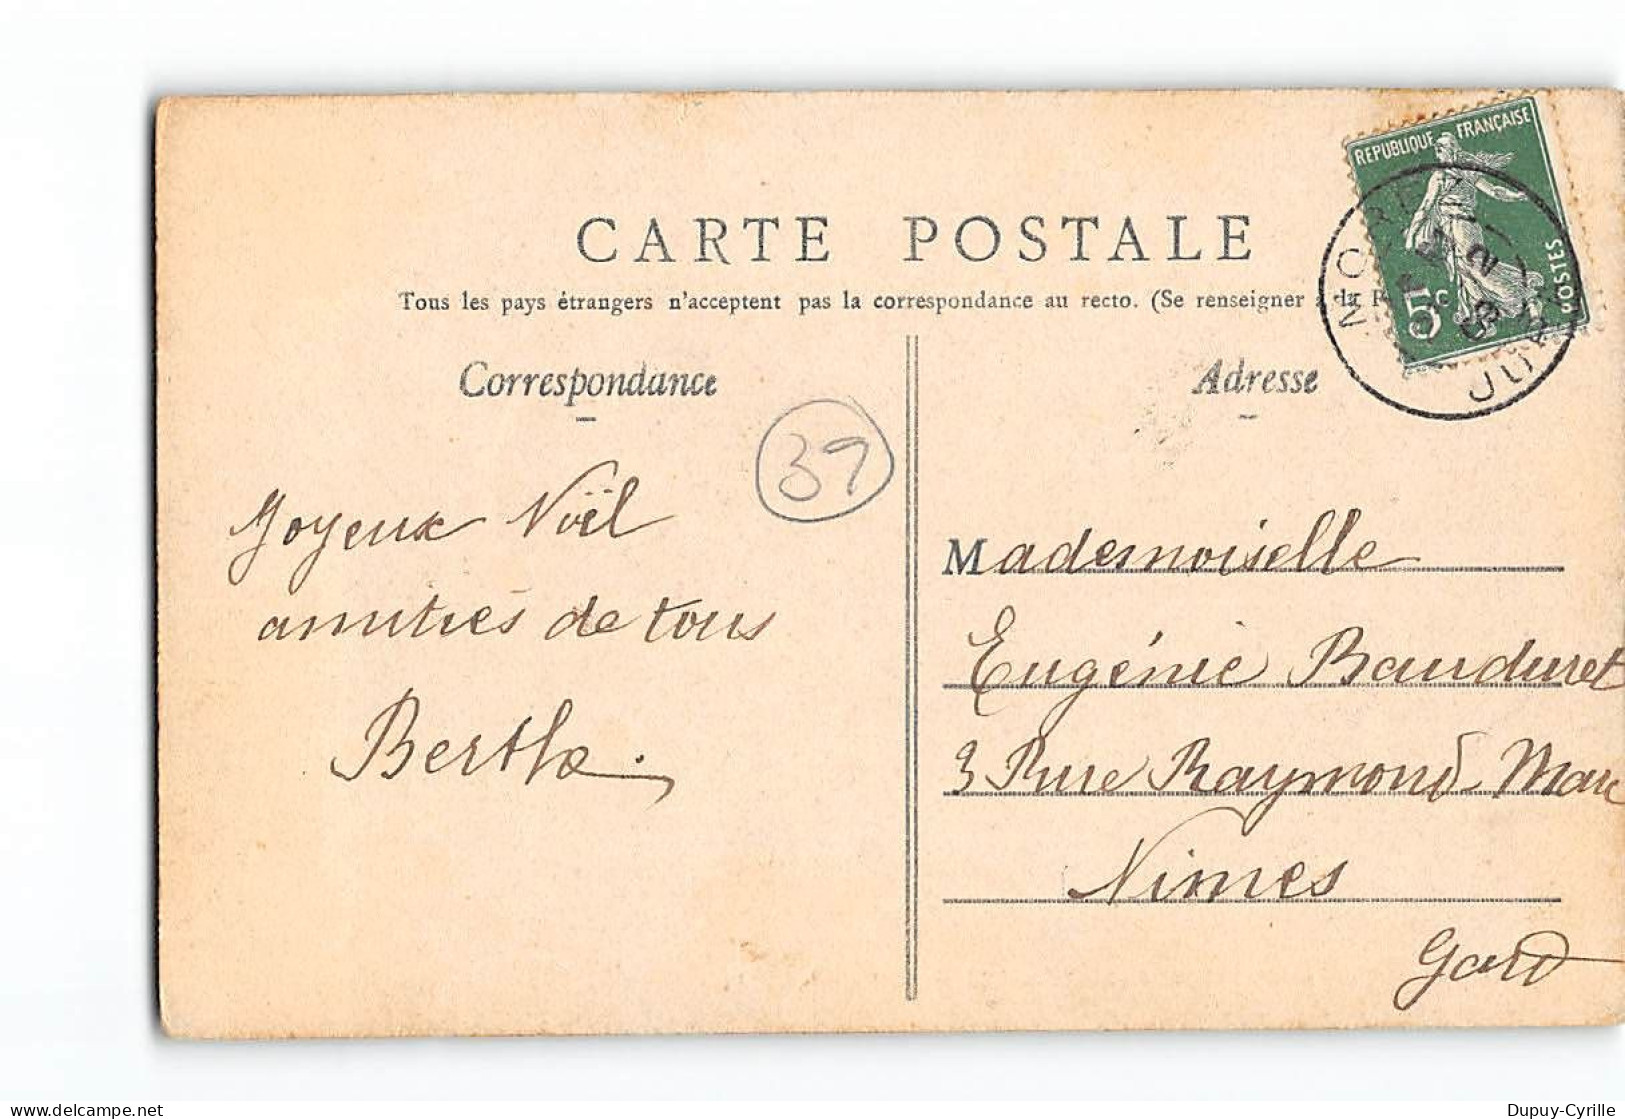 REPUBLIQUE FRANÇAISE
POSTES
5c
MOREZ
JURA
CARTE POSTALE
Tous les pays étrangers n'acceptent pas la correspondance au recto. (Se renseigner à la
Correspondance
Adresse
39
Joyeux Noël
amitiés de tous
Berthe.
Mademoiselle
Eugénie Bauduret
3 Rue Raymond Marc
Nimes
Gard
delcampe.net
Dupuy-Cyrille